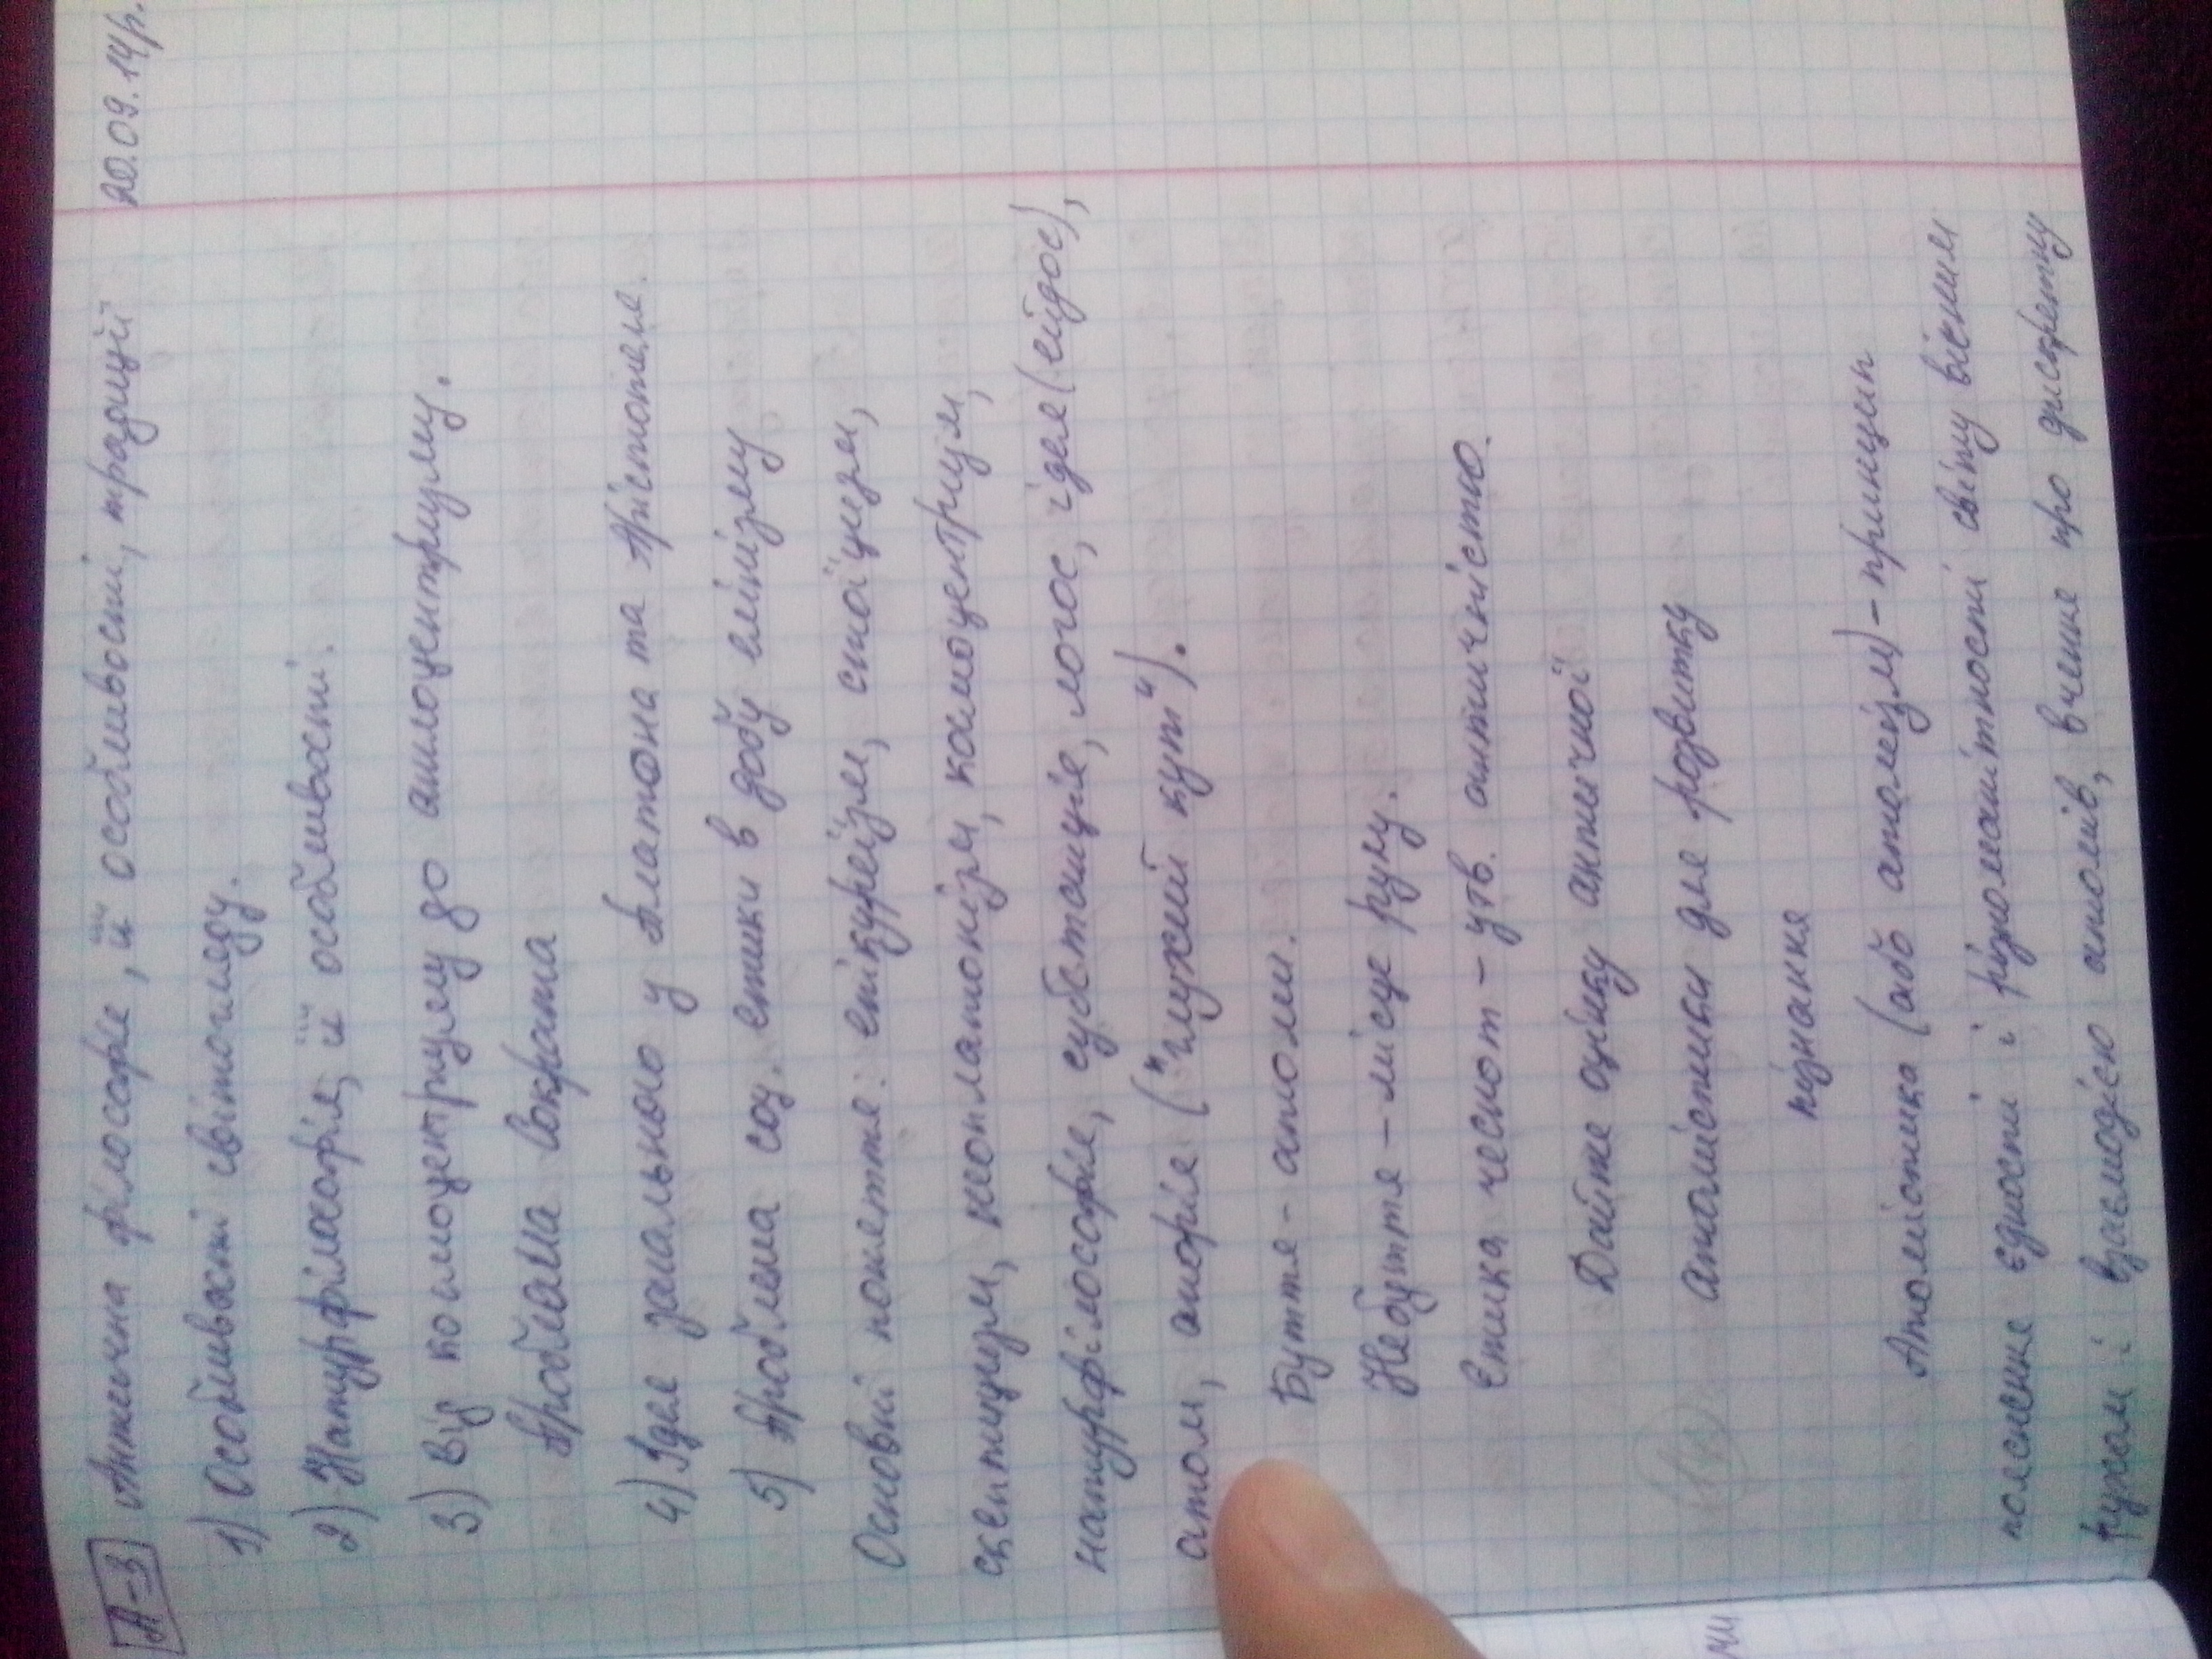 Л-3 Антична філософія, її особливості, традиції 20.09.14р.
1) Особливості світогляду.
2) Натурфілософія, її особливості.
3) Від космоцентризму до атлоцентризму.
Проблема Сократа
4) Ідея загального у Платона та Арістотеля.
5) Проблема соц. етики в добу елінізму
Основні поняття: епікуреїзм, стоїцизм,
скептицизм, неоплатонізм, космоцентризм,
натурфілософія, субстанція, логос, ідея (ейдос),
атом, апорія ("глухий кут").
Буття - атоми.
Небуття - місце руху.
Етика чеснот - утв. античністю.
Дайте оцінку античної
атомістики для розвитку
пізнання
Атомістика (або атомізм) - принцип
пояснення єдності і різноманітності світу вічним
рухом і взаємодією атомів, вчення про дискретну
чи